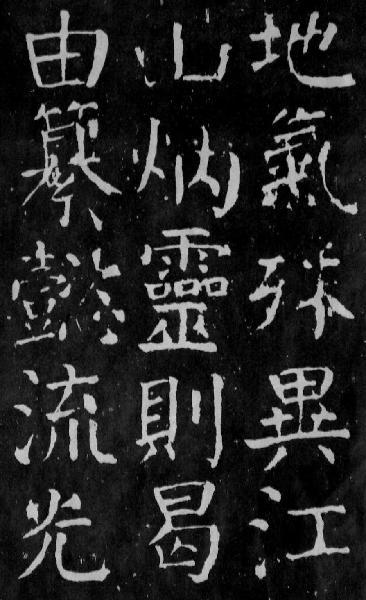 地氣殊異江
山炳靈則曷
由纂懿流光